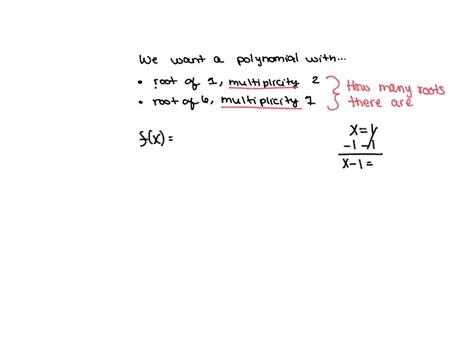 We want a polynomial with...
• root of 1, multiplicity 2
• root of 6, multiplicity 1
How many roots
there are
f(x) =
x = 1
-1 -1
x-1 =